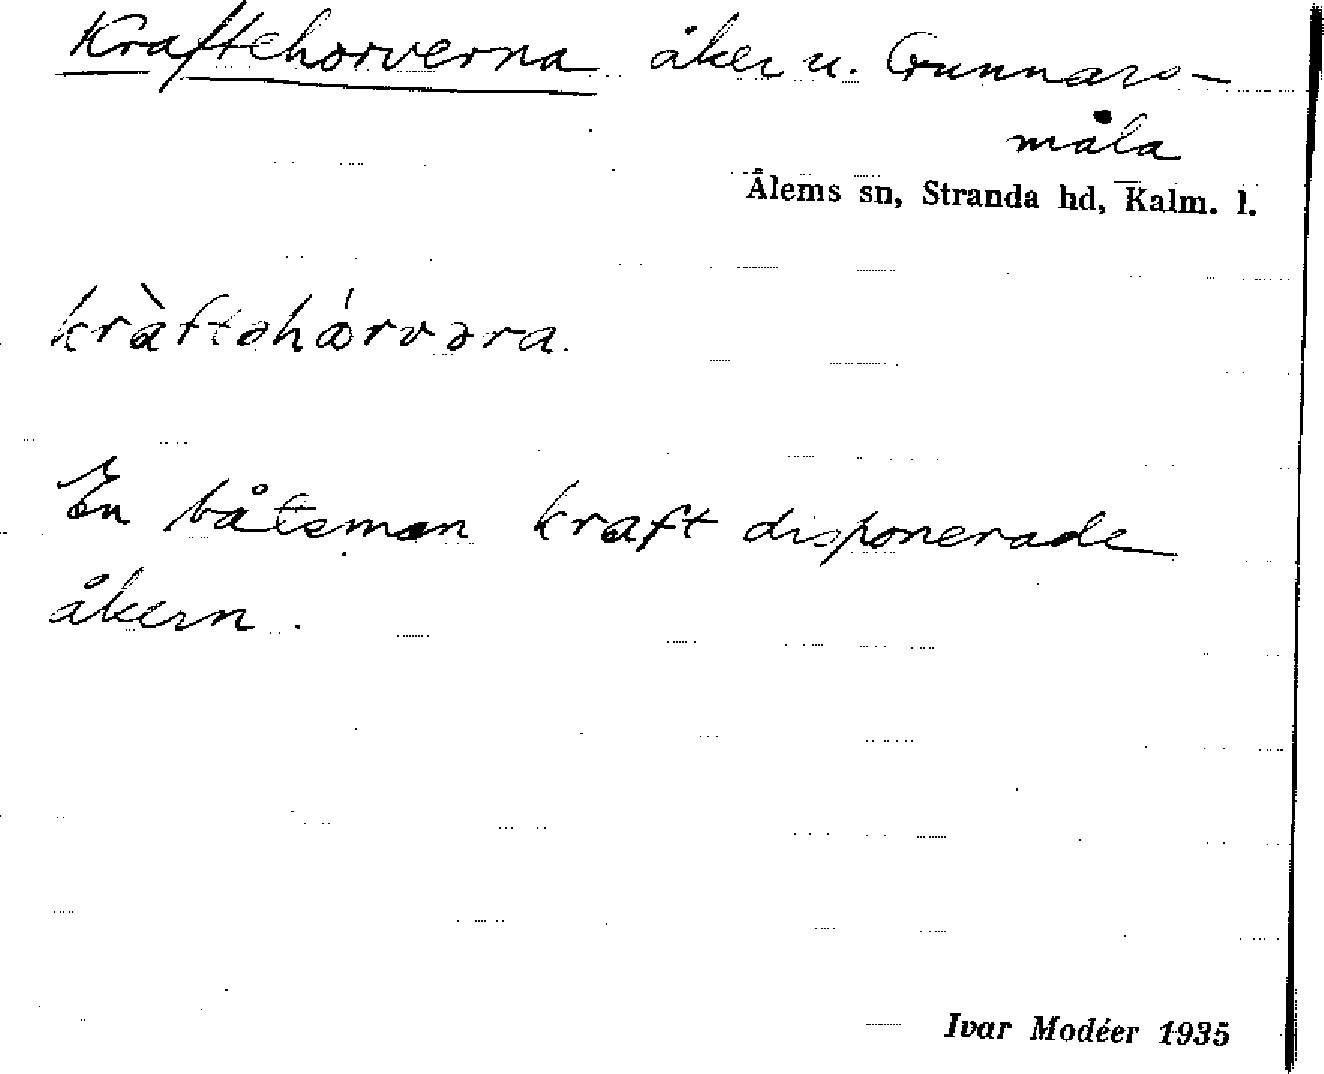 Kraftehorverna åker u. Gunnars-
måla
Ålems sn, Stranda hd, Kalm. l.
kràftəhǻrvəra.
En båtsman Kraft disponerade
åkern.
Ivar Modéer 1935